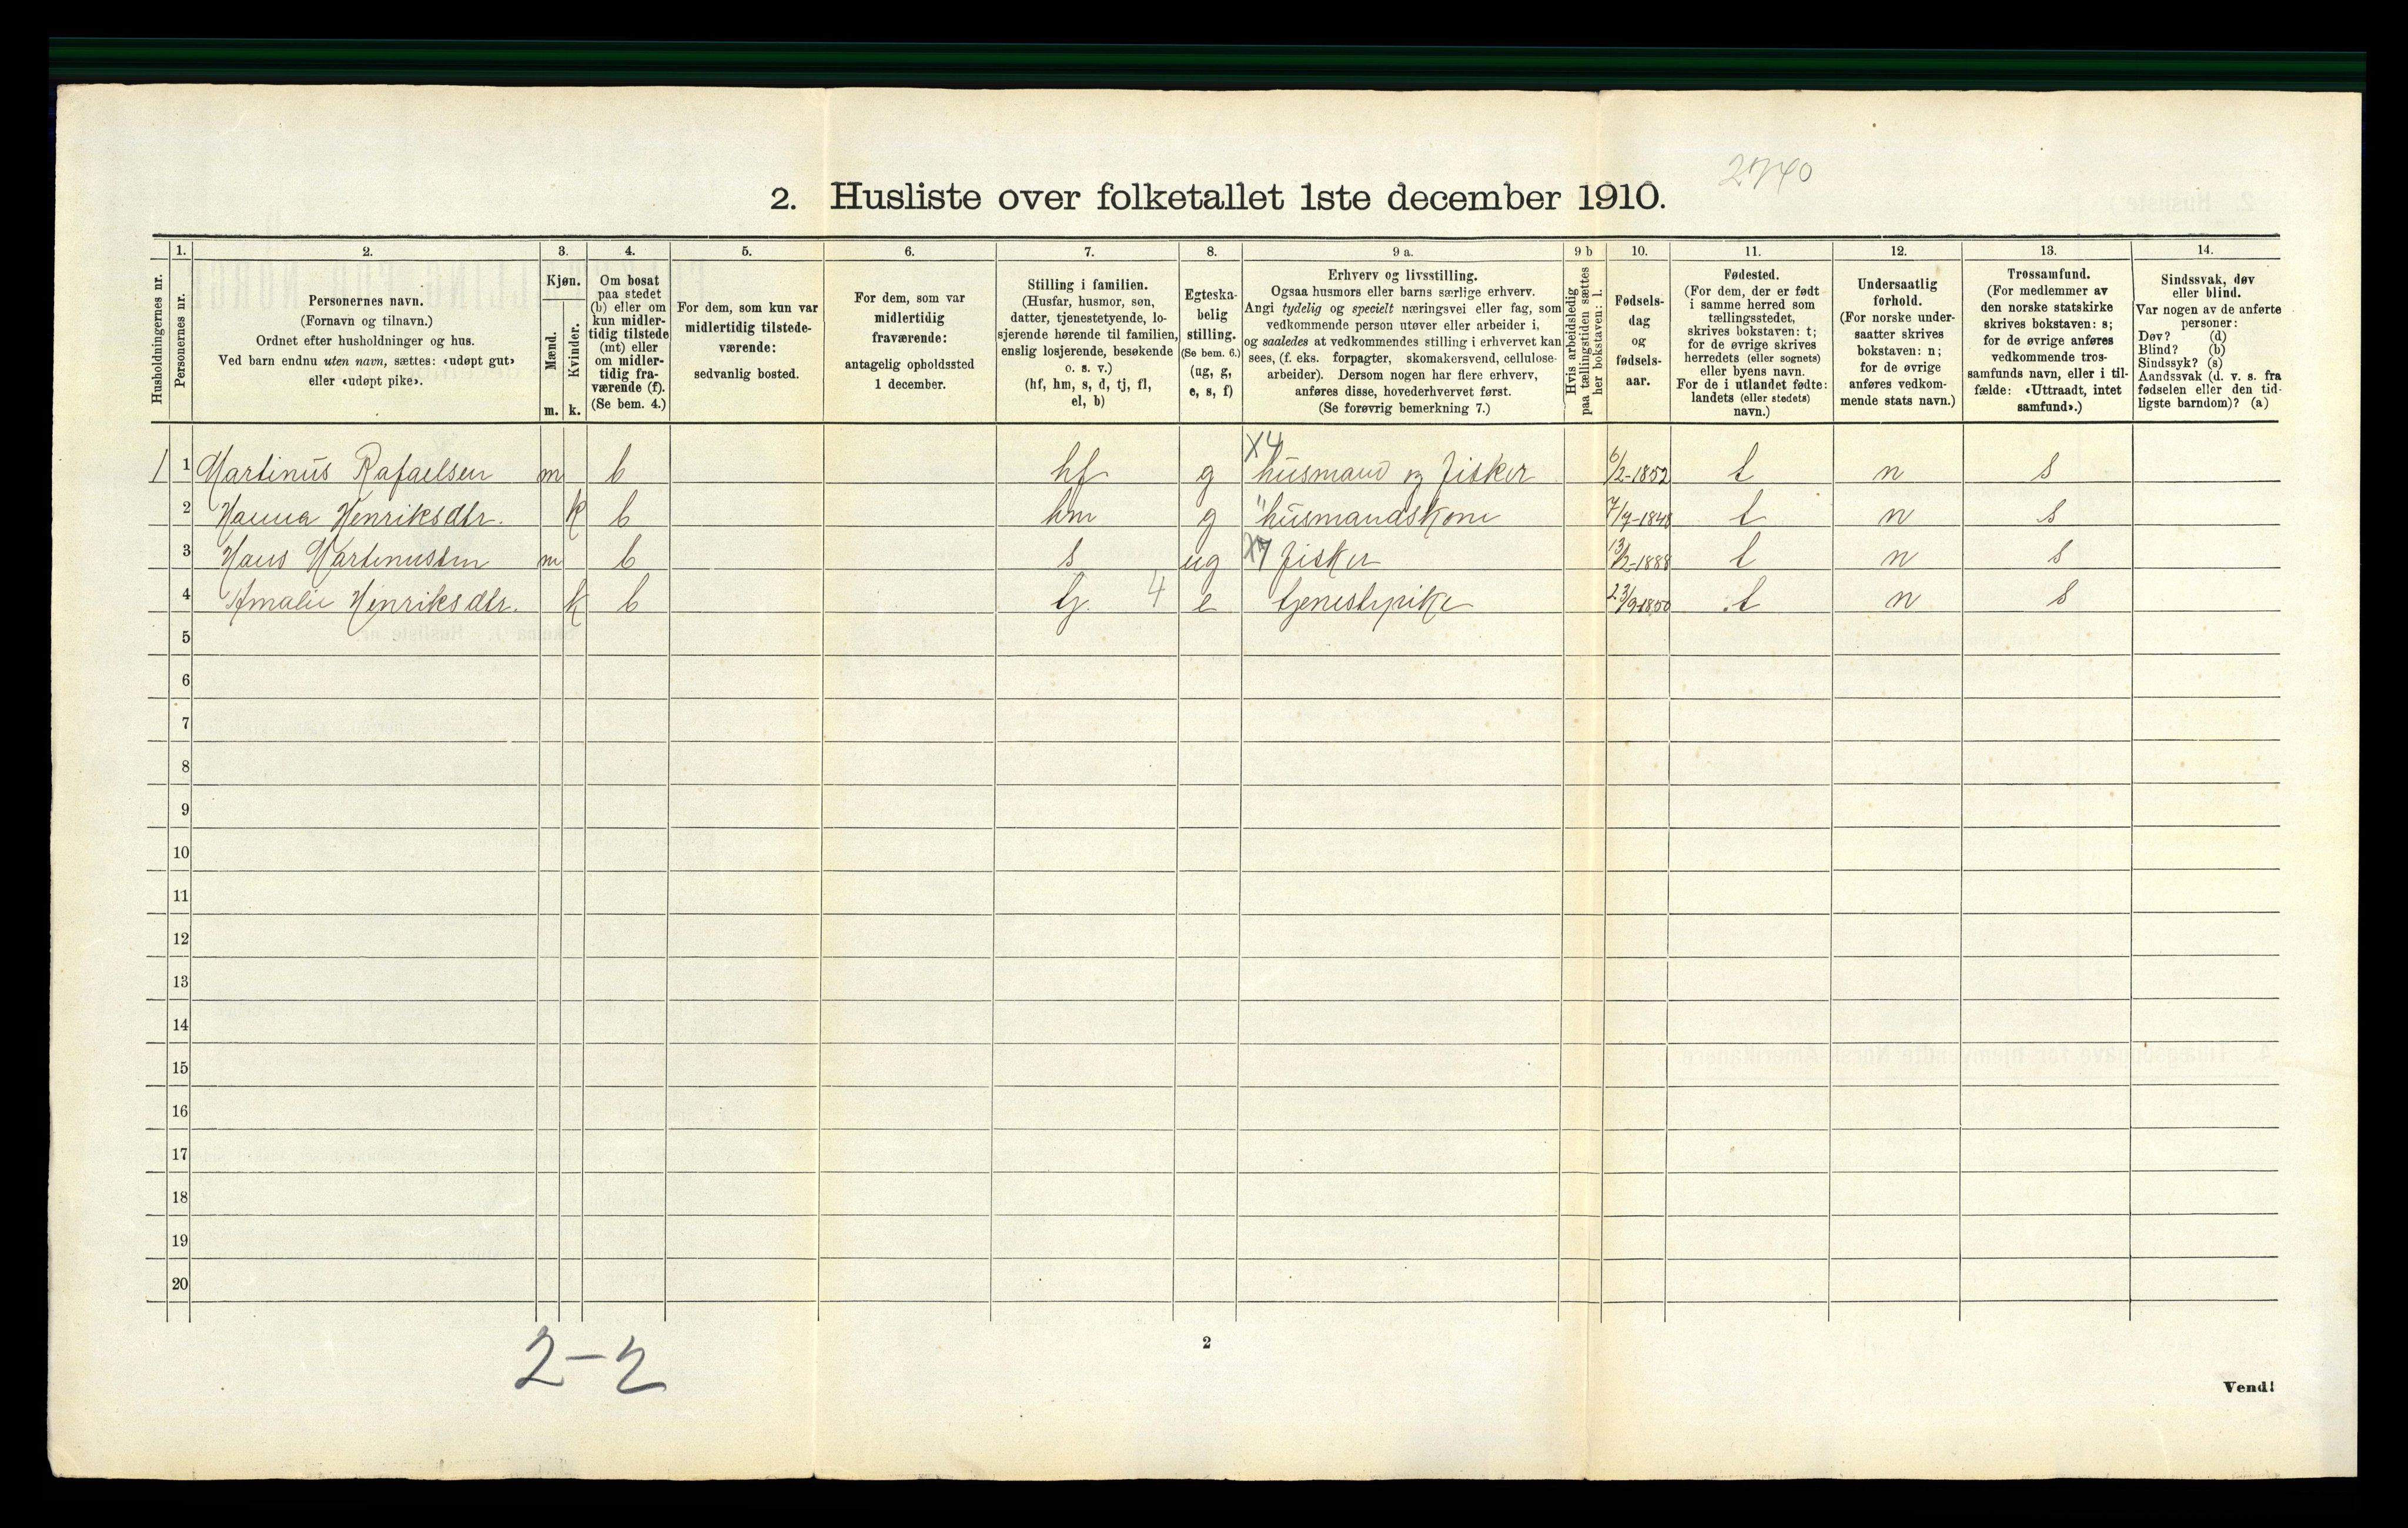 2740
2. Husliste over folketallet 1ste december 1910.
Husholdningernes nr.
1.
Personernes nr.
2.
Personernes navn.
(Fornavn og tilnavn.)
Ordnet efter husholdninger og hus.
Ved barn endnu uten navn, sættes: «udøpt gut»
eller «udøpt pike».
3.
Kjøn.
Mænd.
Kvinder.
m. k.
4.
Om bosat
paa stedet
(b) eller om
kun midler-
tidig tilstede
(mt) eller
om midler-
tidig fra-
værende (f).
(Se bem. 4.)
5.
For dem, som kun var
midlertidig tilstede-
værende:
sedvanlig bosted.
6.
For dem, som var
midlertidig
fraværende:
antagelig opholdssted
1 december.
7.
Stilling i familien.
(Husfar, husmor, søn,
datter, tjenestetyende, lo-
sjerende hørende til familien,
enslig losjerende, besøkende
o. s. v.)
(hf, hm, s, d, tj, fl,
el, b)
8.
Egteska-
belig
stilling.
(Se bem. 6.)
(ug, g,
e, s, f)
9 a.
Erhverv og livsstilling.
Ogsaa husmors eller barns særlige erhverv.
Angi tydelig og specielt næringsvei eller fag, som
vedkommende person utøver eller arbeider i,
og saaledes at vedkommendes stilling i erhvervet kan
sees, (f. eks. forpagter, skomakersvend, cellulose-
arbeider). Dersom nogen har flere erhverv,
anføres disse, hovederhvervet først.
(Se forøvrig bemerkning 7.)
9 b
Hvis arbeidsledig
paa tællingstiden sættes
her bokstaven: l.
10.
Fødsels-
dag
og
fødsels-
aar.
11.
Fødested.
(For dem, der er født
i samme herred som
tællingsstedet,
skrives bokstaven: t;
for de øvrige skrives
herredets (eller sognets)
eller byens navn.
For de i utlandet fødte:
landets (eller stedets)
navn.)
12.
Undersaatlig
forhold.
(For norske under-
saatter skrives
bokstaven: n;
for de øvrige
anføres vedkom-
mende stats navn.)
13.
Trossamfund.
(For medlemmer av
den norske statskirke
skrives bokstaven: s;
for de øvrige anføres
vedkommende tros-
samfunds navn, eller i til-
fælde: «Uttraadt, intet
samfund».)
14.
Sindssvak, døv
eller blind.
Var nogen av de anførte
personer:
Døv? (d)
Blind? (b)
Sindssyk? (s)
Aandssvak (d. v. s. fra
fødselen eller den tid-
ligste barndom)? (a)
X4
1 1 Martinus Rafaelsen m b hf g husmand og fisker 6/2-1852 t n s
2 Hanna Henriksdtr. k b hm g " husmandskone t n s
3 Hans Martinussen m b s ug fisker t n s
4 Amalie Henriksdtr. k b tj. 4 e tjenestepike 23/9-1850 t n s
5
6
7
8
9
10
11
12
13
14
15
16
17
18
19
20
2-2
2
Vend!